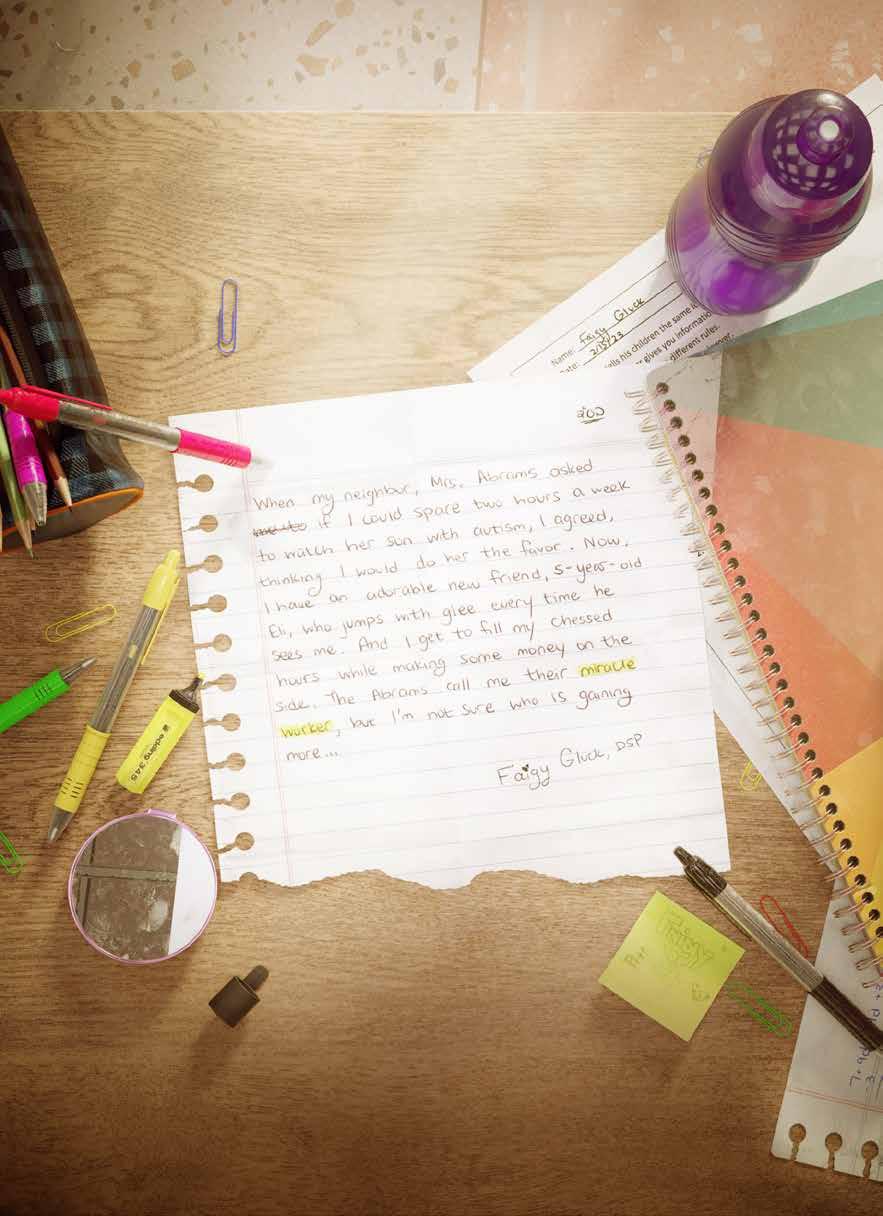 Name: Faigy Gluck
ate: 2/15/23
ells his children the same
er gives you informatio
different rules.
בס"ד
When my neighbor, Mrs. Abrams asked
me to if I could spare two hours a week
to watch her son with autism, I agreed,
thinking I would do her the favor. Now,
I have an adorable new friend, 5-year-old
Eli, who jumps with glee every time he
sees me. And I get to fill my chessed
hours while making some money on the
side. The Abrams call me their miracle
worker, but I'm not sure who is gaining
more...
Faigy Gluck, DSP
edding 345